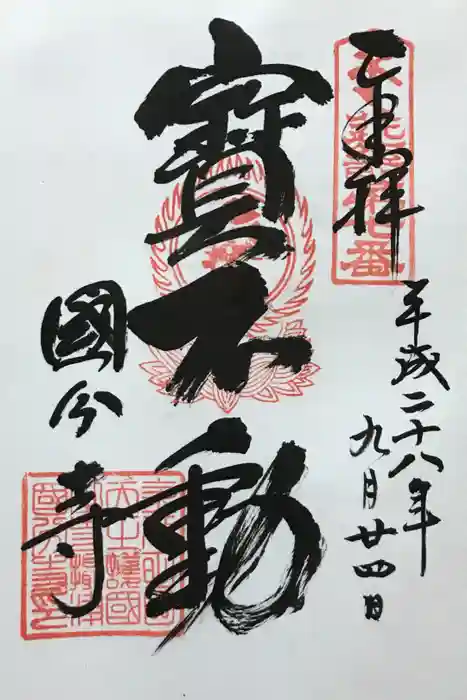 奉拜
平成二十八年
九月廿四日
寶不動
國分寺